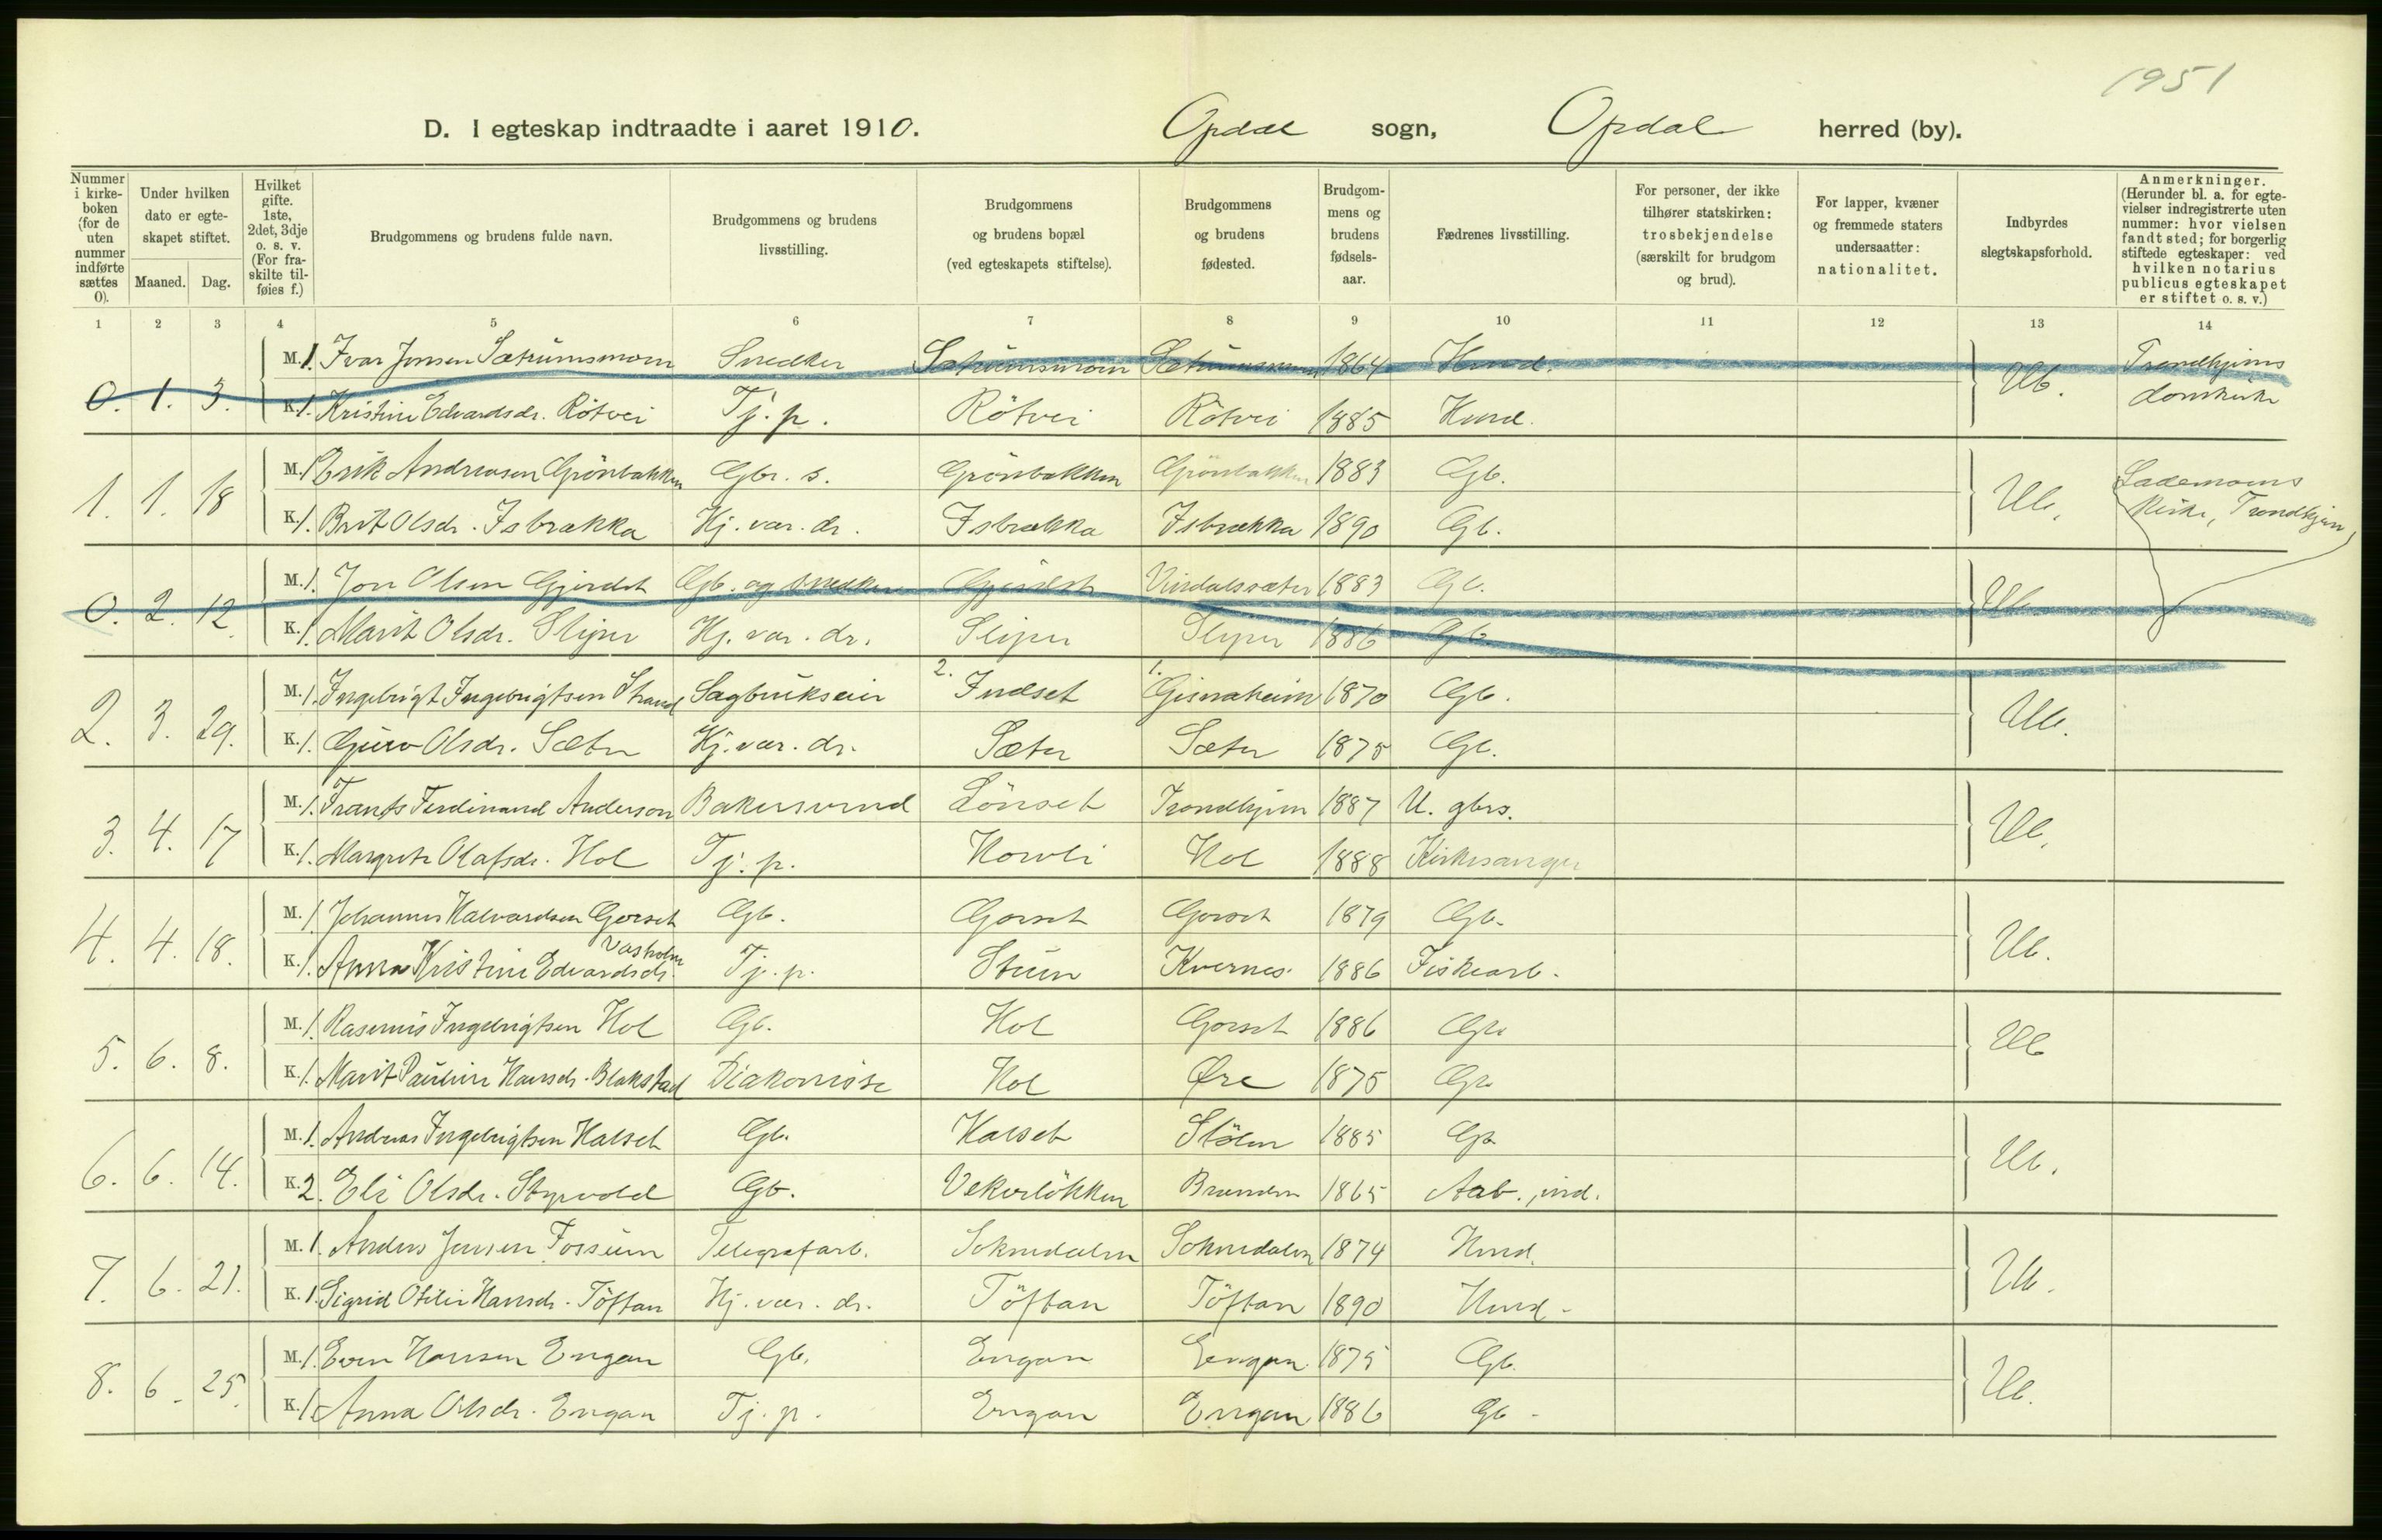 1951
D. I egteskap indtraadte i aaret 1910. Opdal sogn, Opdal herred (by).
Nummer i kirke-boken (for de uten nummer indførte sættes 0).
Under hvilken dato er egte-skapet stiftet.
Maaned. Dag.
Hvilket gifte. 1ste, 2det, 3dje o. s. v. (For fra-skilte til-føies f.)
Brudgommens og brudens fulde navn.
Brudgommens og brudens livsstilling.
Brudgommens og brudens bopæl (ved egteskapets stiftelse).
Brudgommens og brudens fødested.
Brudgom-mens og brudens fødsels-aar.
Fædrenes livsstilling.
For personer, der ikke tilhører statskirken: trosbekjendelse (særskilt for brudgom og brud).
For lapper, kvæner og fremmede staters undersaatter: nationalitet.
Indbyrdes slegtskapsforhold.
Anmerkninger. (Herunder bl. a. for egte-vielser indregistrerte uten nummer: hvor vielsen fandt sted; for borgerlig stiftede egteskaper: ved hvilken notarius publicus egteskapet er stiftet o. s. v.)
1 2 3 4 5 6 7 8 9 10 11 12 13 14
M. 1. Ivar Jonsen Sætrumsmoen Snedker Sætrumsmoen Sætrumsmoen 1864 Husmd. Trondhjems
0. 1. 3. Ub.
K. 1. Kristine Edvardsdr. Rötvei Tj. p. Rötvei Rötvei 1885 Husmd. domkirke
M. 1. Erik Andreasen Grönbakken Gbr. s. Grönbakken Grönbakken 1883 Gb. Lademoens
1. 1. 18 Ub.
K. 1. Brit Olsdr. Isbrækka Hj. vær. dr. Isbrækka Isbrækka 1890 Gb. Kirke, Trondhjem
M. 1. Jon Olsen Gjerdet Gb. og snedker Gjerdet Vindalssæter 1883 Gb.
0. 2. 12. Ub.
K. 1. Marit Olsdr. Sliper Hj. vær. dr. Sliper Sliper 1886 Gb.
M. 1. Ingebrigt Ingebrigtsen Strand Sagbrukseier 2. Indset 1. Gisnaheim 1870 Gb.
2. 3. 29. Ub.
K. 1. Guro Olsdr. Sæter Hj. vær. dr. Sæter Sæter 1875 Gb.
M. 1. Frants Ferdinand Anderson Bakersvend Lönset Trondhjem 1887 U. gbrs.
3. 4. 17 Ub.
K. 1. Margrete Olafsdr. Hol Tj. p. Hol 1888 Kirkesanger
M. 1. Johannes Halvardsen Gorset Gb. Gorset Gorset 1879 Gb.
4. 4. 18. Ub.
Vasholm
K. 1. Anna Kristine Edvardsdr. Tj. p. Stuen Kvernes 1886 Fiskearb.
M. 1. Rasmus Ingebrigtsen Hol Gb. Hol Gorset 1886 Gb.
5. 6. 8. Ub
K. 1. Marit Pauline Hansdr. Blakstad Diakonisse Hol Øre 1875 Gb
M. 1. Andreas Ingebrigtsen Halset Gb. Halset Stölen 1885 Gb
6. 6. 14. Ub.
K. 2. Eli Olsdr. Styrvold Gb. Vekveløkken Brenden 1865 Aab., ind.
M. 1. Anders Jensen Fossum Telegrafarb. Soknedalen Soknedalen 1874 Husmd.
7. 6. 21. Ub.
K. 1. Sigrid Otelie Hansdr. Töftan Hj. vær. dr. Töftan Töftan 1890 Husmd.
M. 1. Even Hansen Engan Gb. Engan Engan 1875 Gb.
8. 6. 25. Ub.
K. 1. Anna Olsdr. Engan Tj. p. Engan Engan 1886 Gb